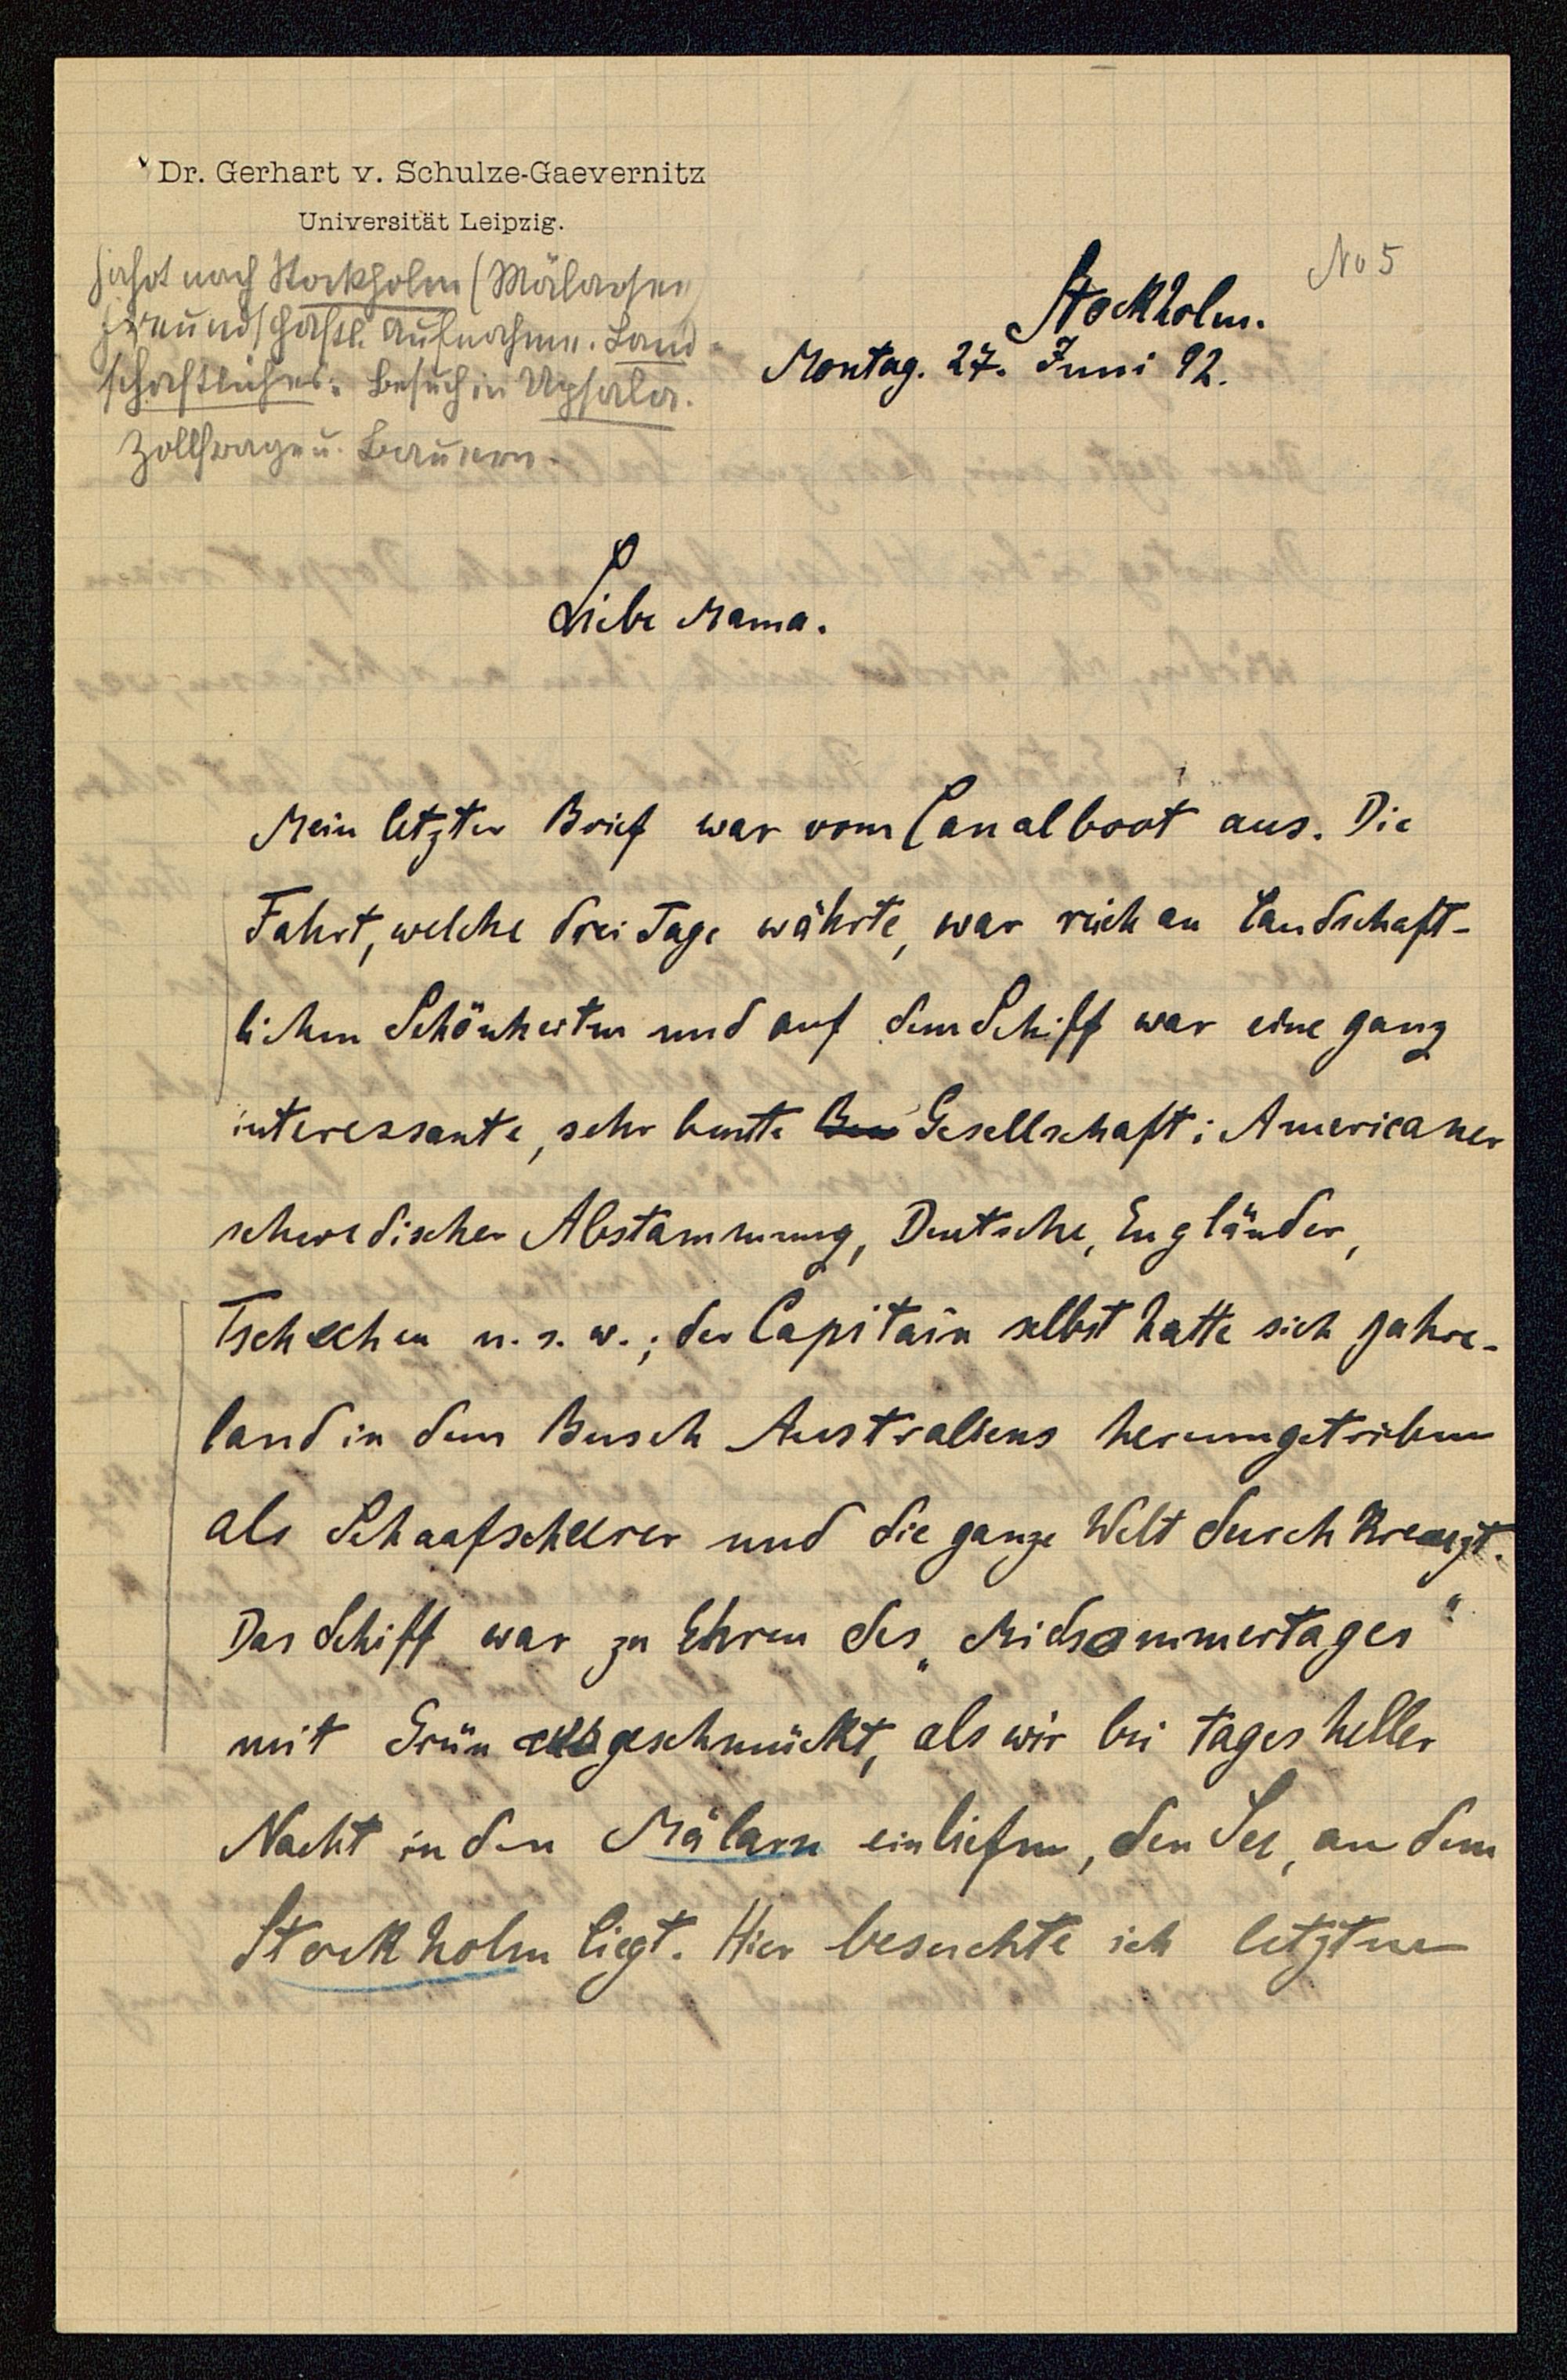 Dr. Gerhart v. Schulze-Gaevernitz
Universität Leipzig.
Fahrt nach Stockholm (Mälarsee)
Freundschaftl. Aufnahme. Land-
schaftliches. Besuch in Upsala.
Zollfrage u. Bauern.
No 5
Stockholm.
Montag. 27. Juni 92.
Liebe Mama.
Mein letzter Brief war vom Canalboot aus. Die
Fahrt, welche drei Tage währte, war reich an landschaft-
lichen Schönheiten und auf dem Schiff war eine ganz
interessante, sehr bunte Gesellschaft: Americaner
schwedischer Abstammung, Deutsche, Engländer,
Tschechen u. s. w.; der Capitain selbst hatte sich jahre-
land in dem Busch Australiens herumgetrieben
als Schaafscheerer und die ganze Welt durchkreuzt.
Das Schiff war zu Ehren des „Midsommertages"
mit Grün geschmückt, als wir bei tagesheller
Nacht in den Mälarn einliefen, den See, an dem
Stockholm liegt. Hier besuchte ich letzten